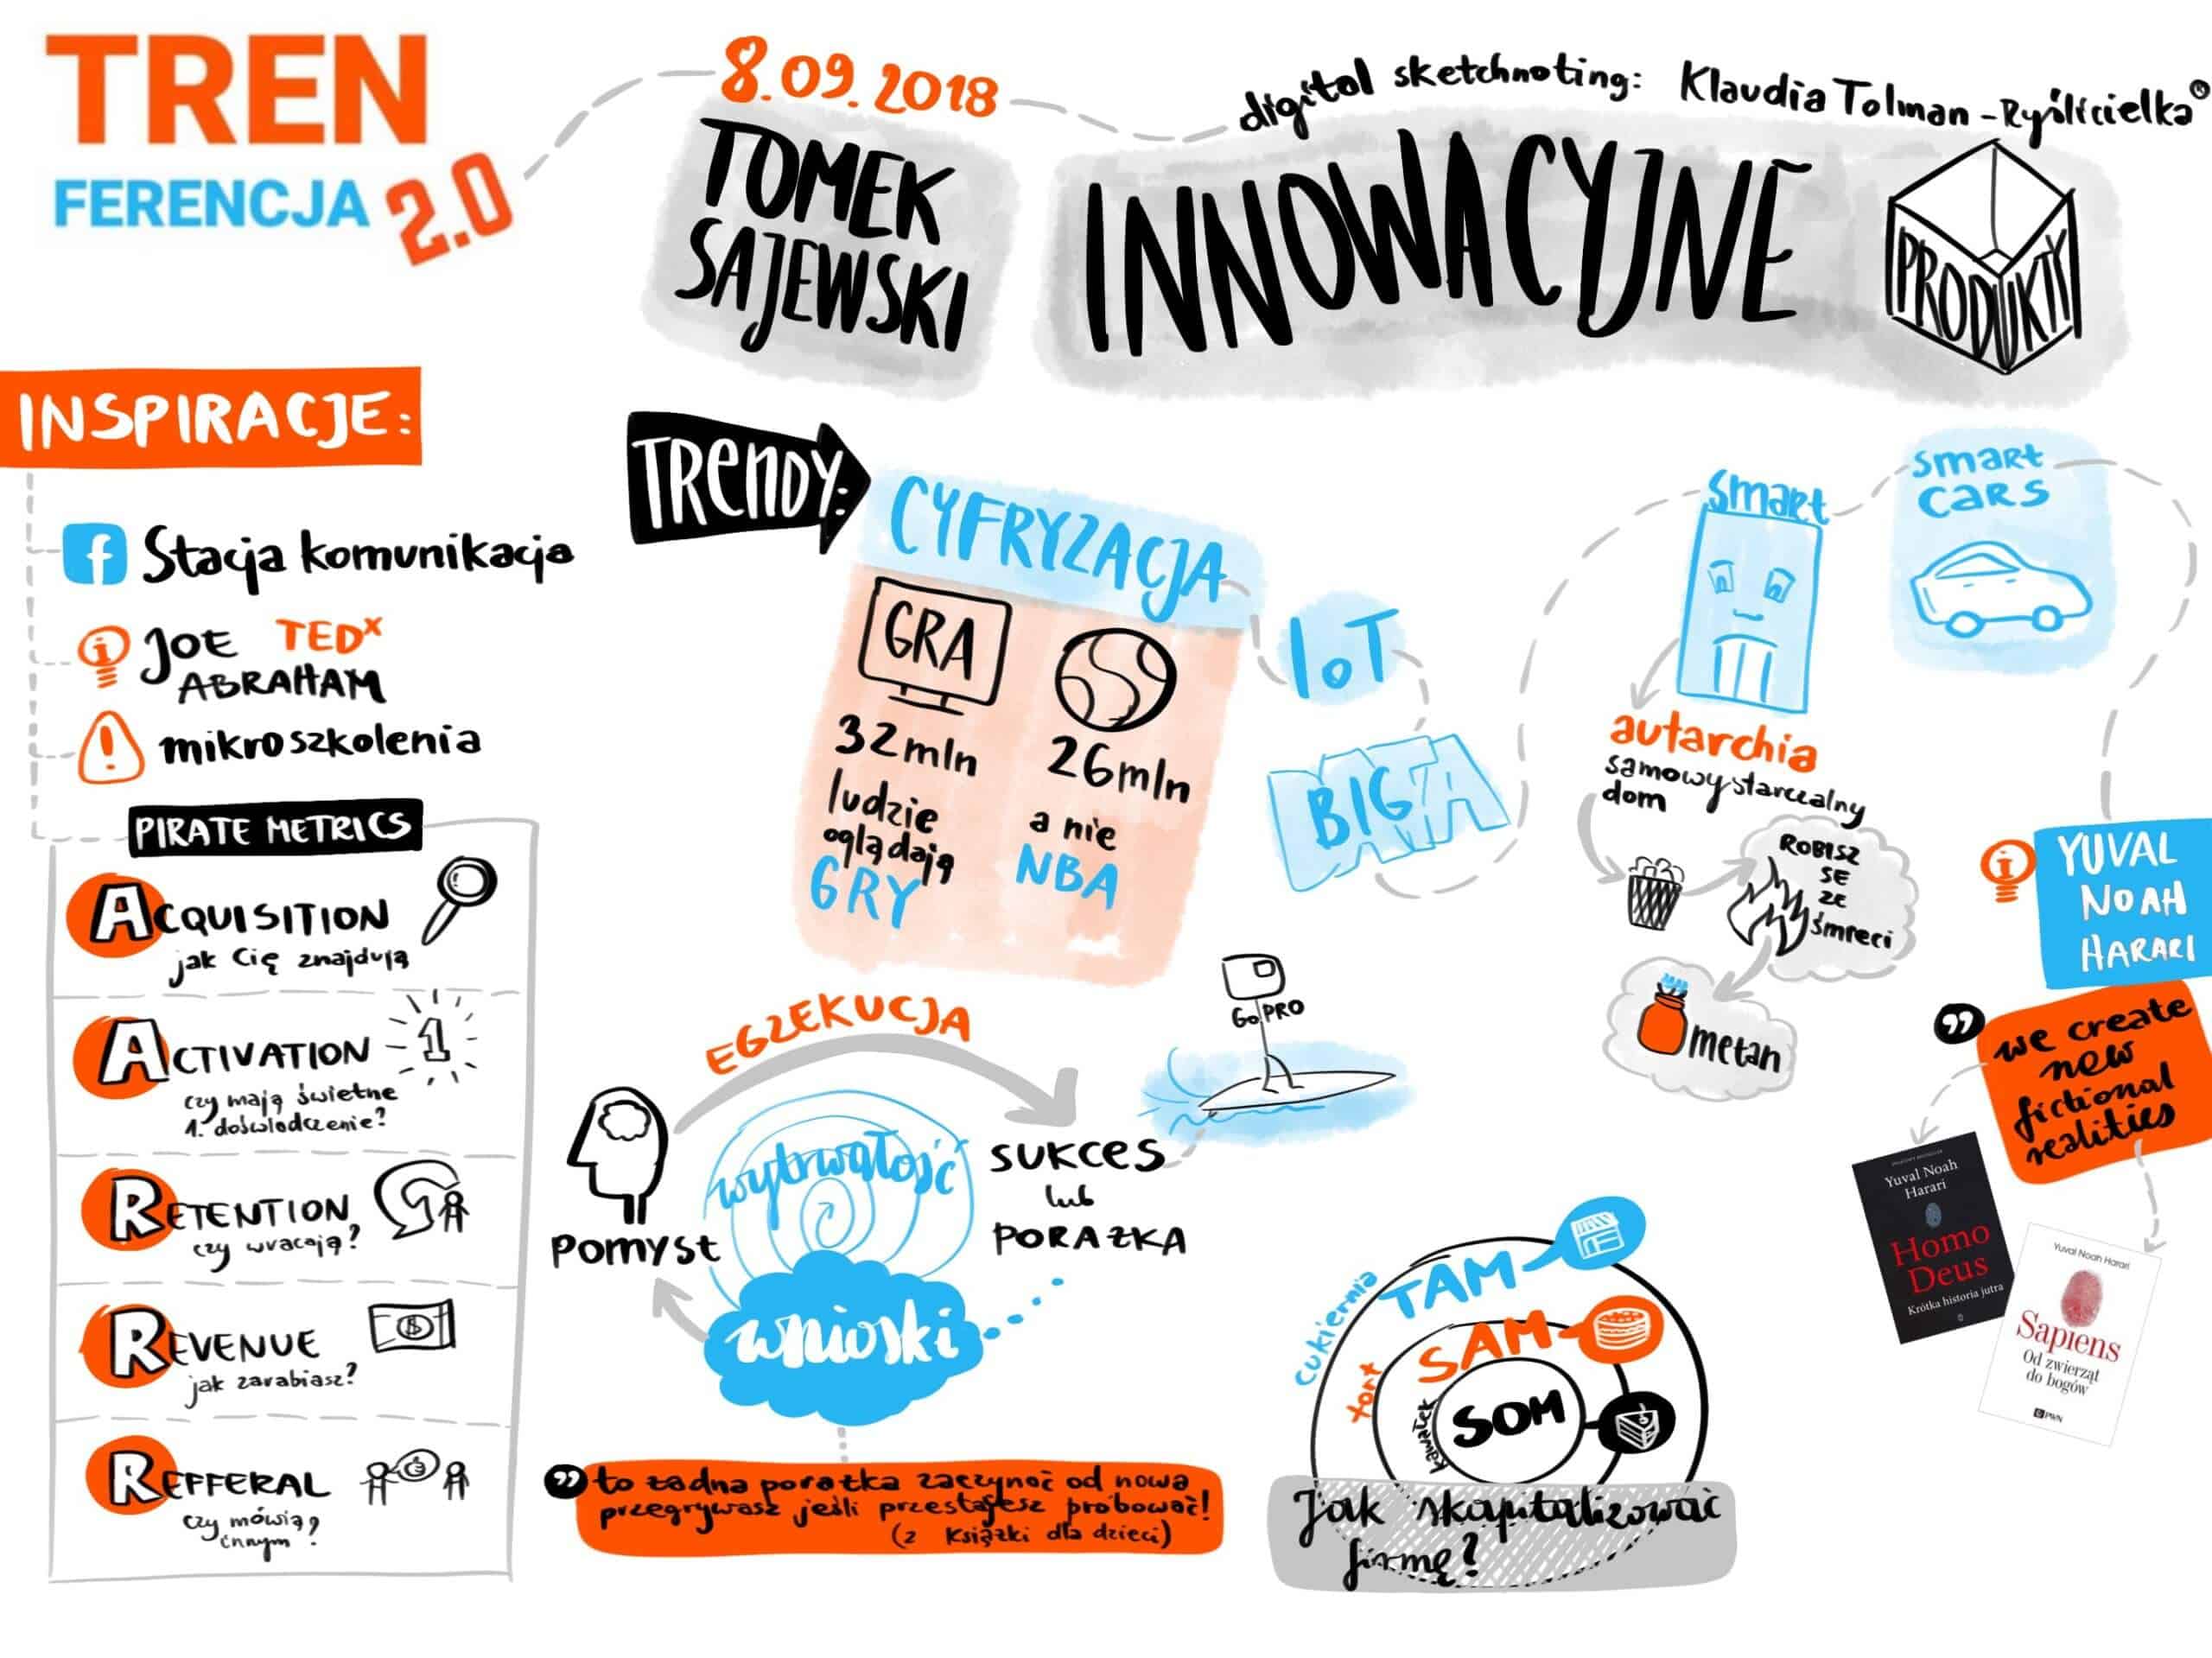 TREN
FERENCJA 2.0
8.09.2018
digital sketchnoting: Klaudia Tolman - Ryślicielka®
TOMEK
SAJEWSKI
INNOWACYJNE
PRODUKTY
INSPIRACJE:
Stacja komunikacja
JOE TEDx
ABRAHAM
mikroszkolenia
PIRATE METRICS
ACQUISITION
jak Cię znajdują
ACTIVATION
1
czy mają świetne
1. doświadczenie?
RETENTION
czy wracają?
REVENUE
jak zarabiasz?
REFFERAL
czy mówią
innym?
TRENDY:
CYFRYZACJA
GRA
32mln
ludzie
oglądają
GRY
26mln
a nie
NBA
IoT
BIG DATA
smart
smart
cars
autarchia
samowystarczalny
dom
ROBISZ
SE
ZE
śmieci
metan
YUVAL
NOAH
HARARI
we create
new
fictional
realities
Yuval Noah
Harari
Homo
Deus
Krótka historia jutra
Yuval Noah Harari
Sapiens
Od zwierząt
do bogów
PWN
EGZEKUCJA
GoPRO
Pomysł
wytrwałość
SUKCES
lub
PORAŻKA
wnioski
to żadna porażka zaczynać od nowa
przegrywasz jeśli przestajesz próbować!
(z książki dla dzieci)
cukiernia
TAM
tort
SAM
kawałek
SOM
Jak skapitalizować
firmę?